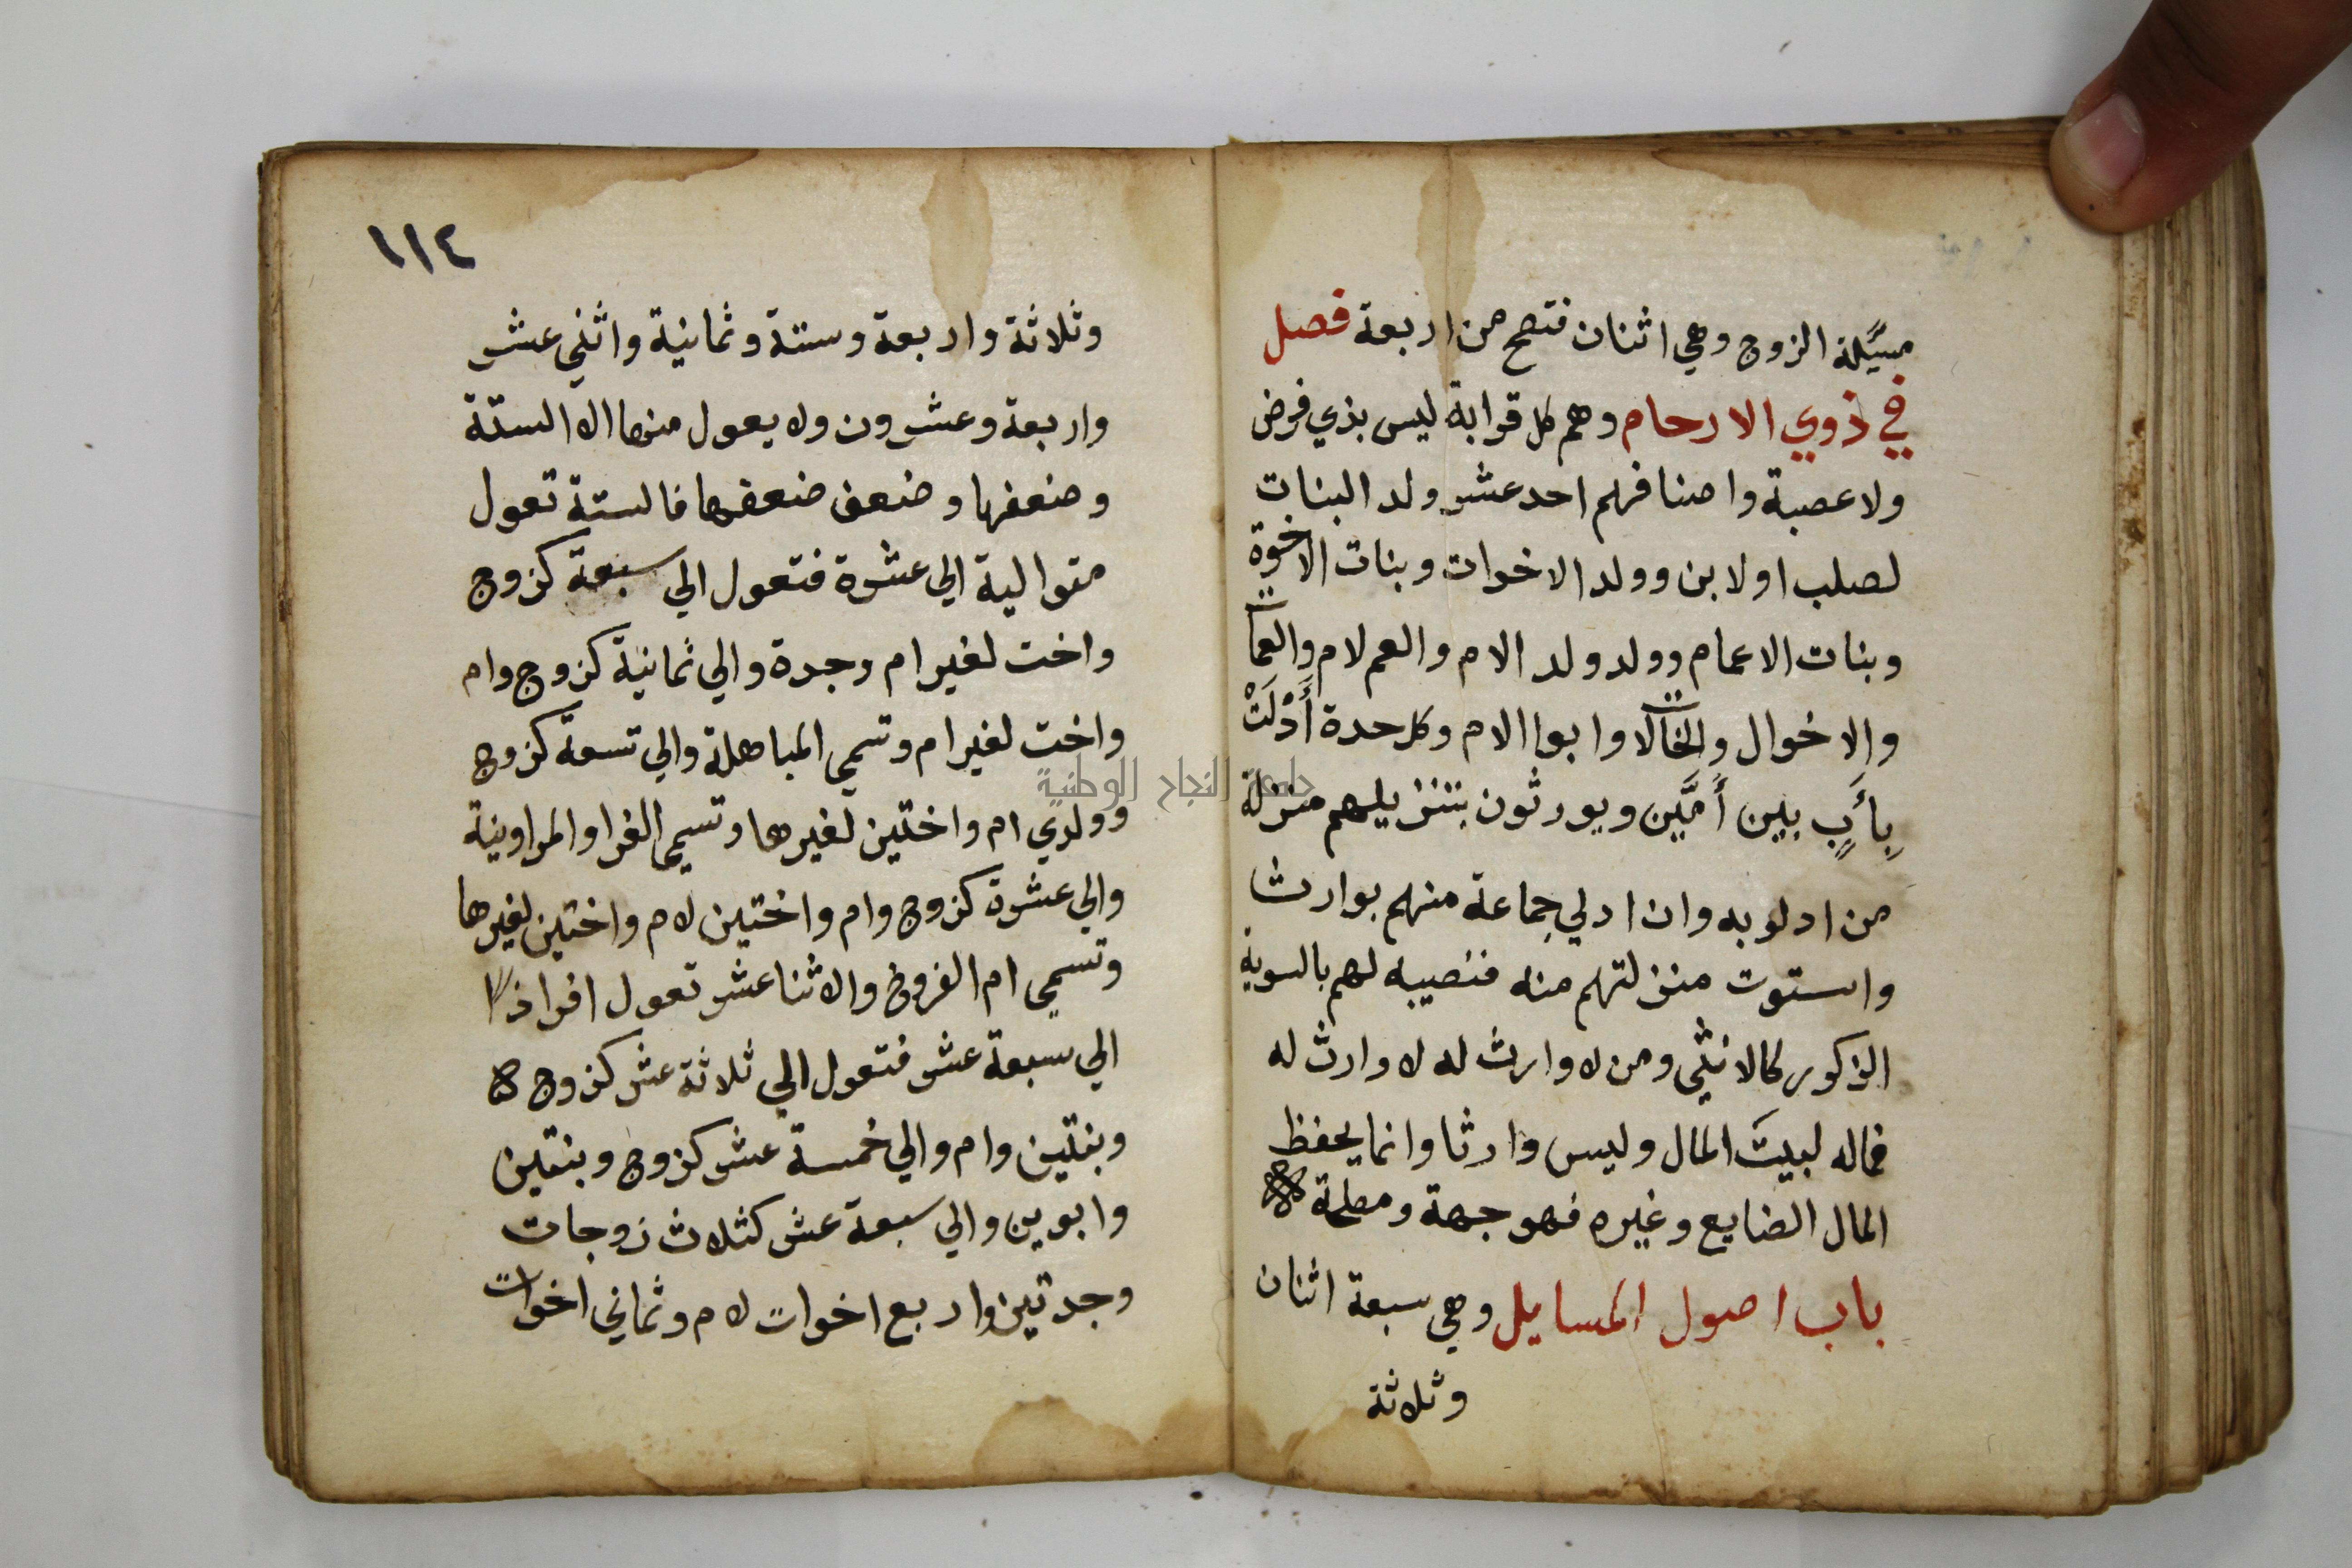 مسيلة الزوج وهي اثنان فتصح من اربعة فصل
في ذوي الارحام وهم كل قرابة ليس بذي فرض
ولا عصبة واصنافهم احد عشر ولد البنات
لصلب او لابن وولد الاخوات وبنات الاخوة
وبنات الاعمام وولد ولد الام والعم لام والعمات
والاخوال والخالات وابوا الام وكل حدة أَدْلَتْ
بِأَبٍ بين أُمَّين ويورثون بتنزيلهم منزلة
من ادلو به وان ادلي جماعة منهم بوارث
واستوت منزلتهم منه فنصيبه لهم بالسوية
الذكور كالانثي ومن لا وارث له لا وارث له
فماله لبيت المال وليس وارثا وانما يحفظ
المال الضايع وغيره فهو جهة ومصلحة
باب اصول المسايل وهي سبعة اثنان
وثلاثة
١١٤
وثلاثة واربعة وستة وثمانية واثني عشر
واربعة وعشرون ولا يعول منها الا الستة
وضعفها وضعف ضعفها فالستة تعول
متوالية الي عشرة فتعول الي سبعة كزوج
واخت لغير ام وجدة والي ثمانية كزوج وام
واخت لغير ام وتسمي المباهلة والي تسعة كزوج
وولدي ام واختين لغيرها وتسمي الغرا والمراوينة
والي عشرة كزوج وام واختين لام واختين لغيرها
وتسمي ام الفروخ والاثنا عشر تعول افرادًا
الي سبعة عشر فتعول الي ثلاثة عشر كزوج
وبنتين وام والي خمسة عشر كزوج وبنتين
وابوين والي سبعة عشر كثلاث زوجات
وجدتين واربع اخوات لام وثماني اخوات
جامعة النجاح الوطنية